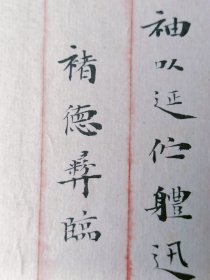 袖以延佇體迅
褚德彝臨